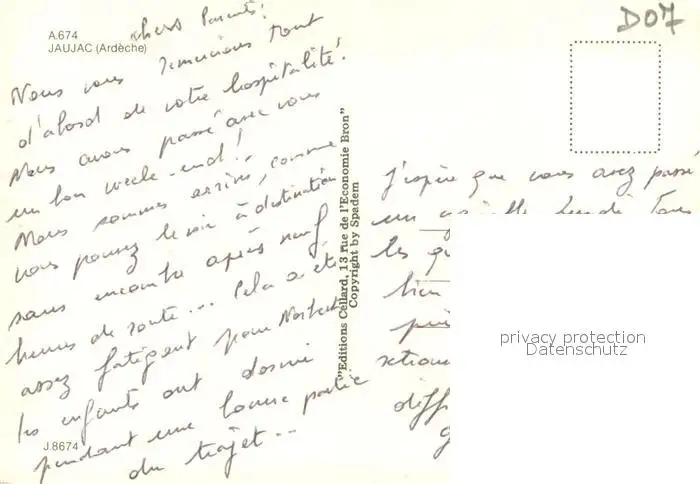 A.674
JAUJAC (Ardèche)
D07
chers Parents!
Nous vous remercions tout
d'abord de votre hospitalité!
Nous avons passé avec vous
un bon week-end!
Nous sommes arrivés, comme
vous pouvez le voir à destination
sans encombre après neuf
heures de route... Cela a été
assez fatigant pour Norbert
les enfants ont dormi
pendant une bonne partie
du trajet...
J.8674
"Editions Cellard, 13 rue de l'Economie Bron"
Copyright by Spadem
J'espère que vous avez passé
un
les
bien
diff
privacy protection
Datenschutz